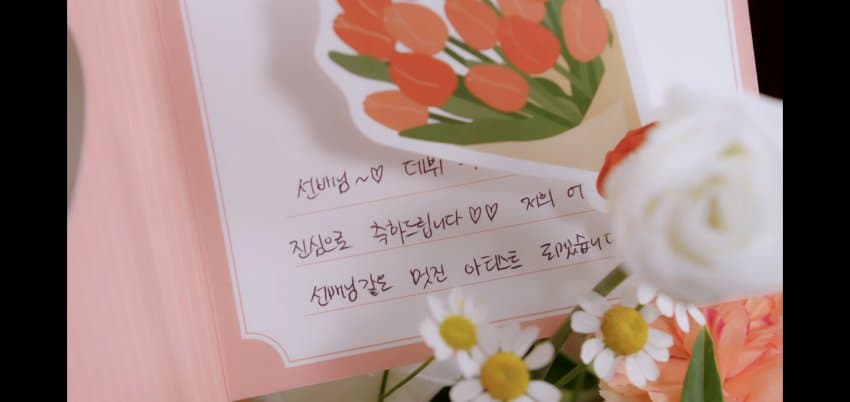 선배님~♡ 데뷔
진심으로 축하드립니다♡♡ 저의
선배님같은 멋진 아티스트 되겠습니다